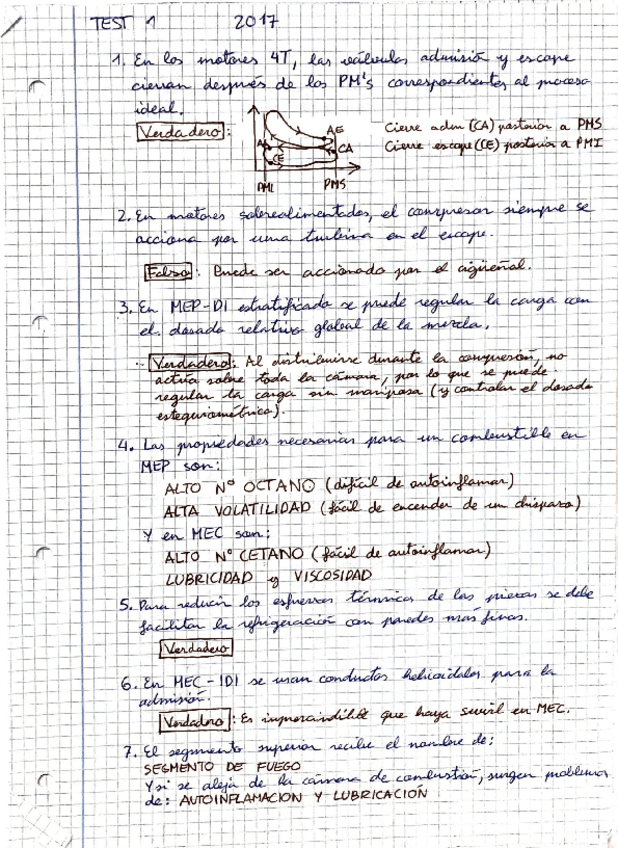 TEST 1 2017
1. En los motores 4T, las válvulas admisión y escape
cierran después de los PM's correspondientes al proceso
ideal.
Verdadero:
AE
AA
CA
CE
PMI PMS
Cierre adm (CA) posterior a PMS
Cierre escape (CE) posterior a PMI
2. En motores sobrealimentados, el compresor siempre se
acciona por una turbina en el escape.
Falso: Puede ser accionado por el cigüeñal.
3. En MEP-DI estratificado se puede regular la carga con
el dosado relativo global de la mezcla.
Verdadero: Al distribuirse durante la compresión, no
actúa sobre toda la cámara, por lo que se puede
regular la carga sin mariposa (y controlar el dosado
estequiométrico).
4. Las propiedades necesarias para un combustible en
MEP son:
ALTO Nº OCTANO (difícil de autoinflamar)
ALTA VOLATILIDAD (fácil de encender de un chispazo)
Y en MEC son:
ALTO Nº CETANO (fácil de autoinflamar)
LUBRICIDAD y VISCOSIDAD
5. Para reducir los esfuerzos térmicos de las piezas se debe
facilitar la refrigeración con paredes más finas.
Verdadero
6. En MEC-IDI se usan conductos helicoidales para la
admisión.
Verdadero: Es imprescindible que haya swirl en MEC.
7. El segmento superior recibe el nombre de:
SEGMENTO DE FUEGO
Y si se aleja de la cámara de combustión, surgen problemas
de: AUTOINFLAMACION Y LUBRICACIÓN